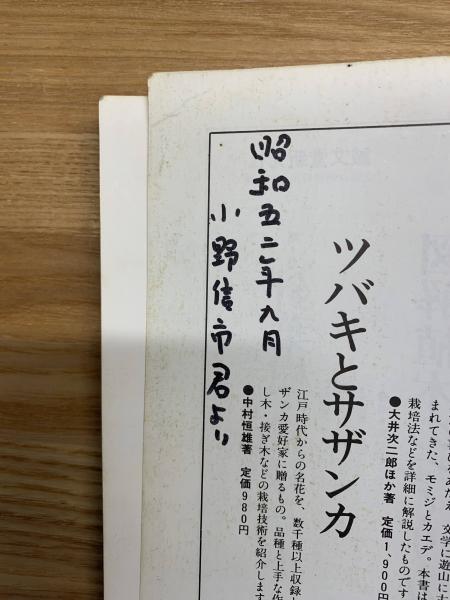 をあたえ、文学に遊山に
まれてきた、モミジとカエデ。本書は
栽培法などを詳細に解説したものです
●大井次二郎ほか著 定価1,900円
ツバキとサザンカ
江戸時代からの名花を、数千種以上収録
ザンカ愛好家に贈るもの。品種と上手な作
し木・接ぎ木などの栽培技術を紹介します
●中村恒雄著 定価980円
昭和五二年九月
小野信市君より